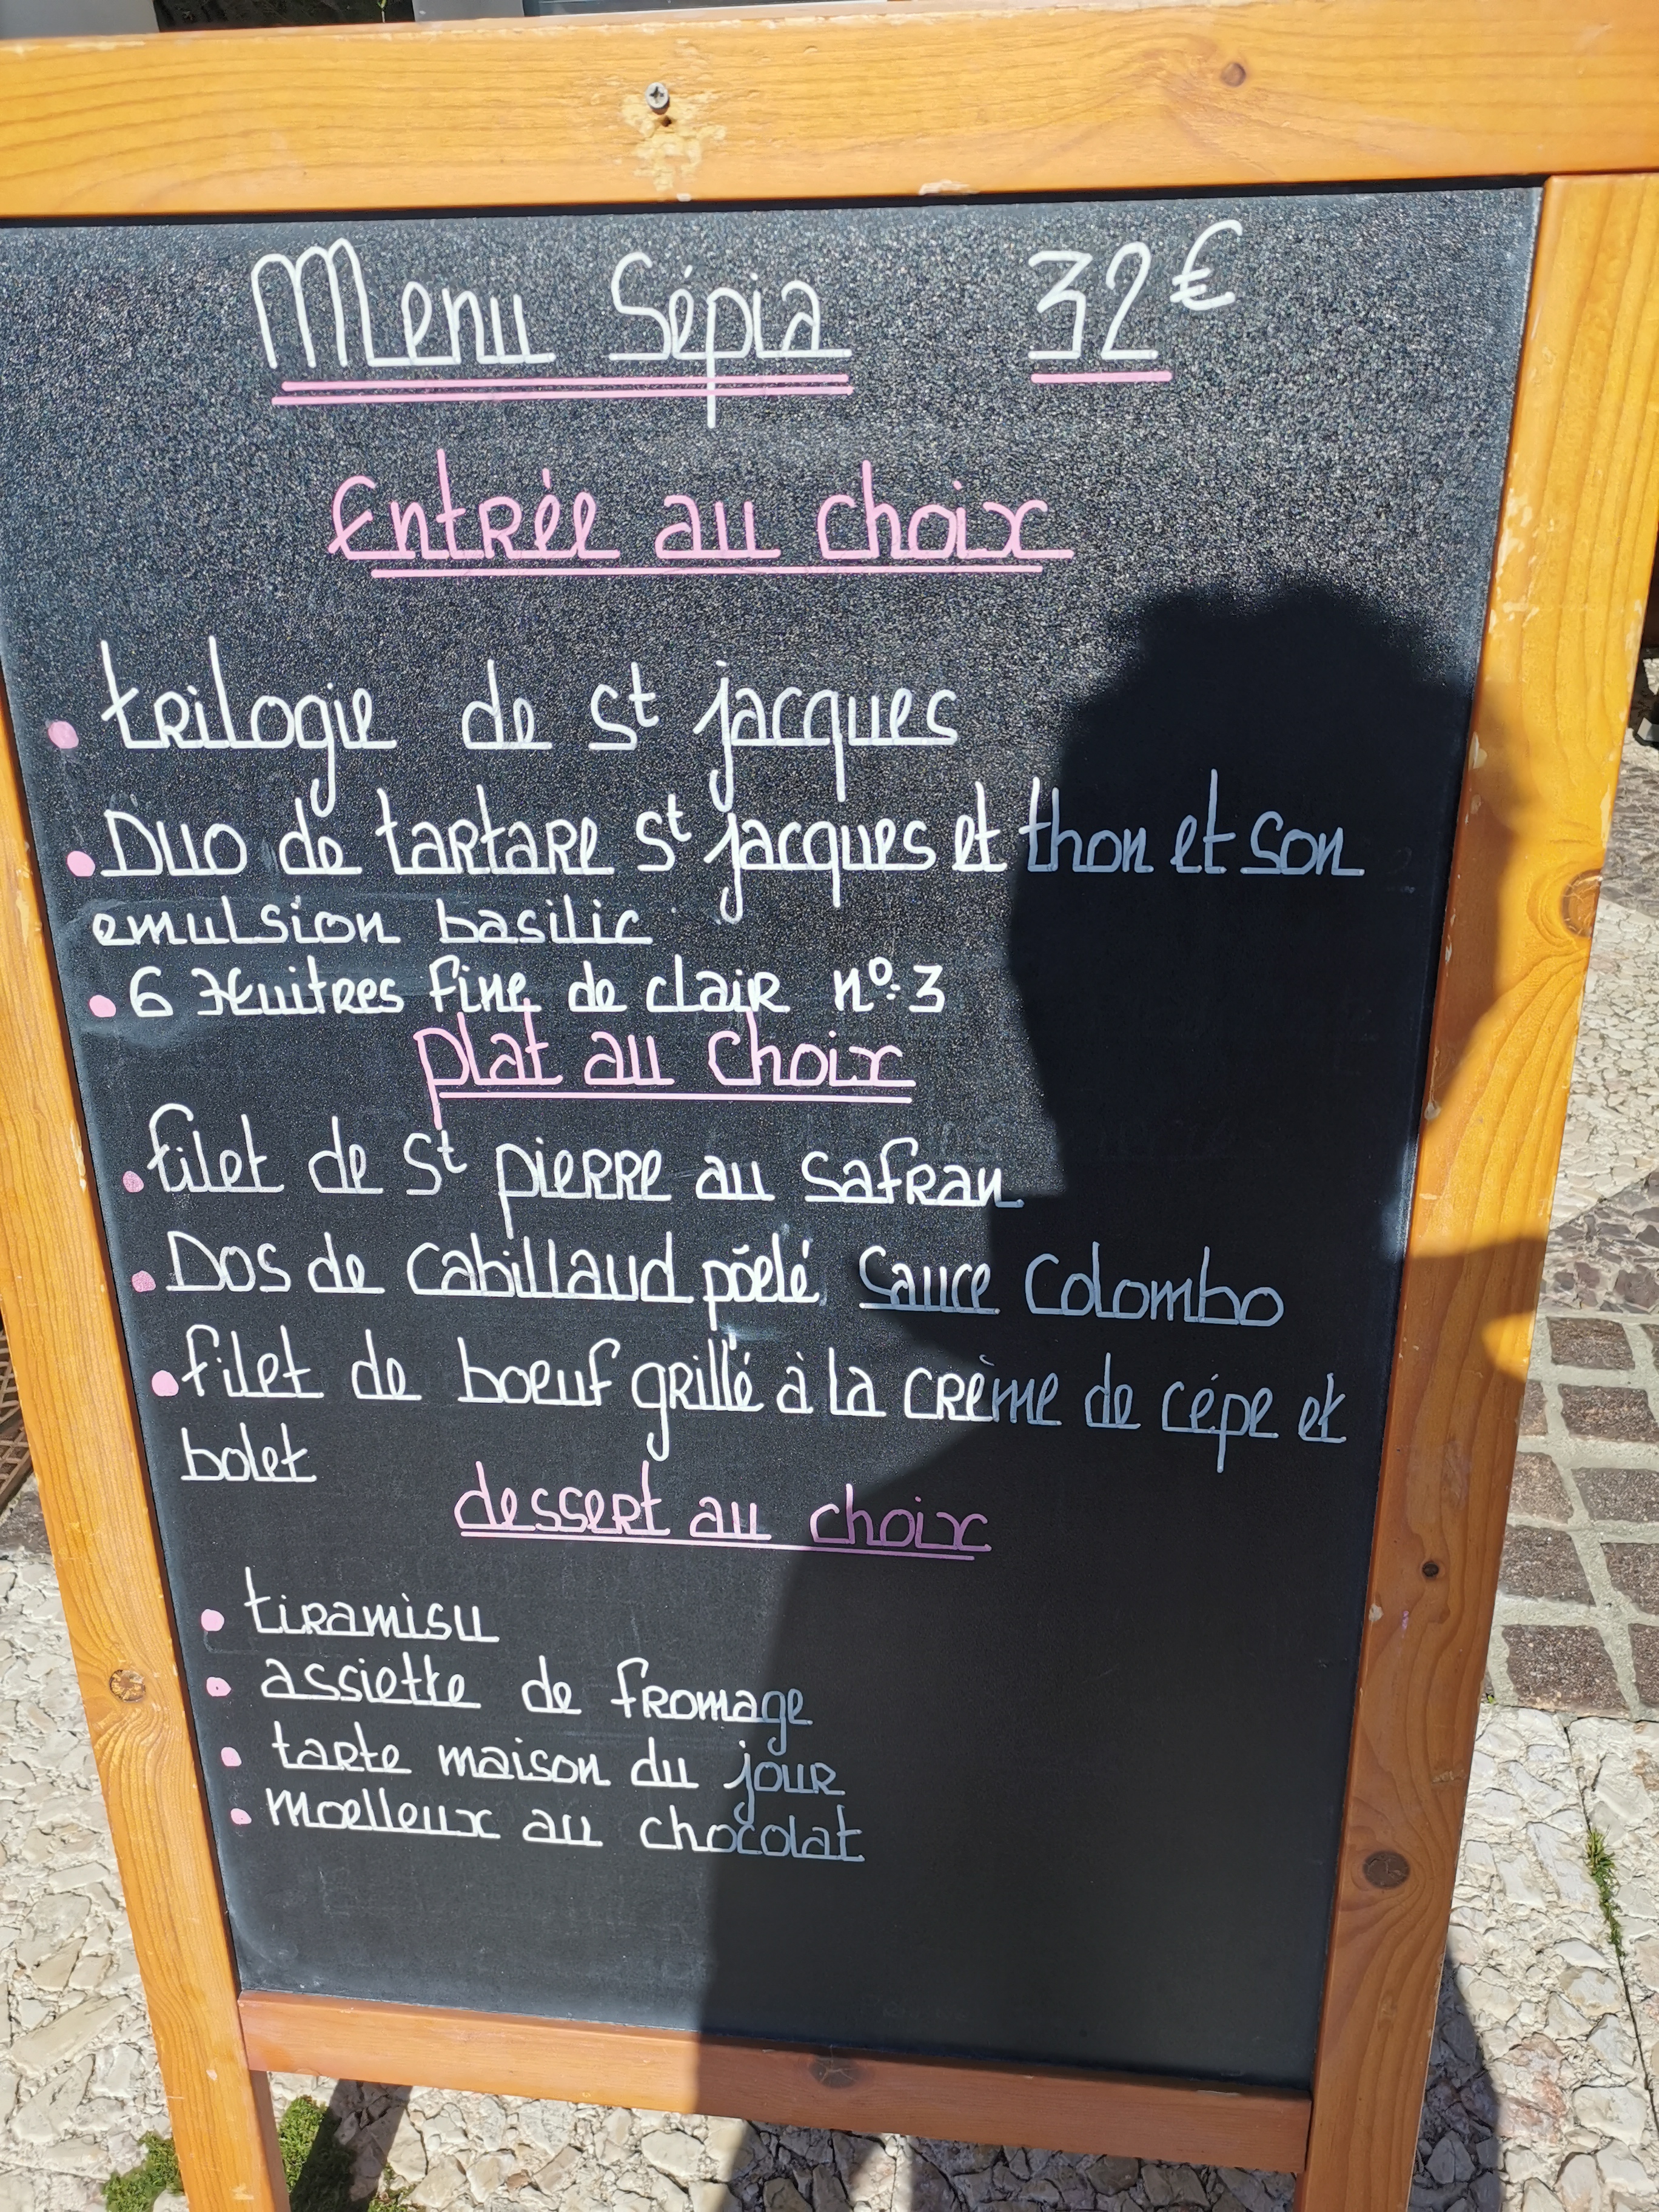 Menu Sépia 32€
Entrée au choix
• trilogie de St jacques
• Duo de tartare St jacques et thon et son
emulsion basilic
• 6 Huitres fine de clair n°:3
plat au choix
• filet de St pierre au safran
• Dos de cabillaud pöelé sauce Colombo
• filet de boeuf grillé à la crème de cépe et
bolet
dessert au choix
• tiramisu
• assiette de fromage
• tarte maison du jour
• moelleux au chocolat